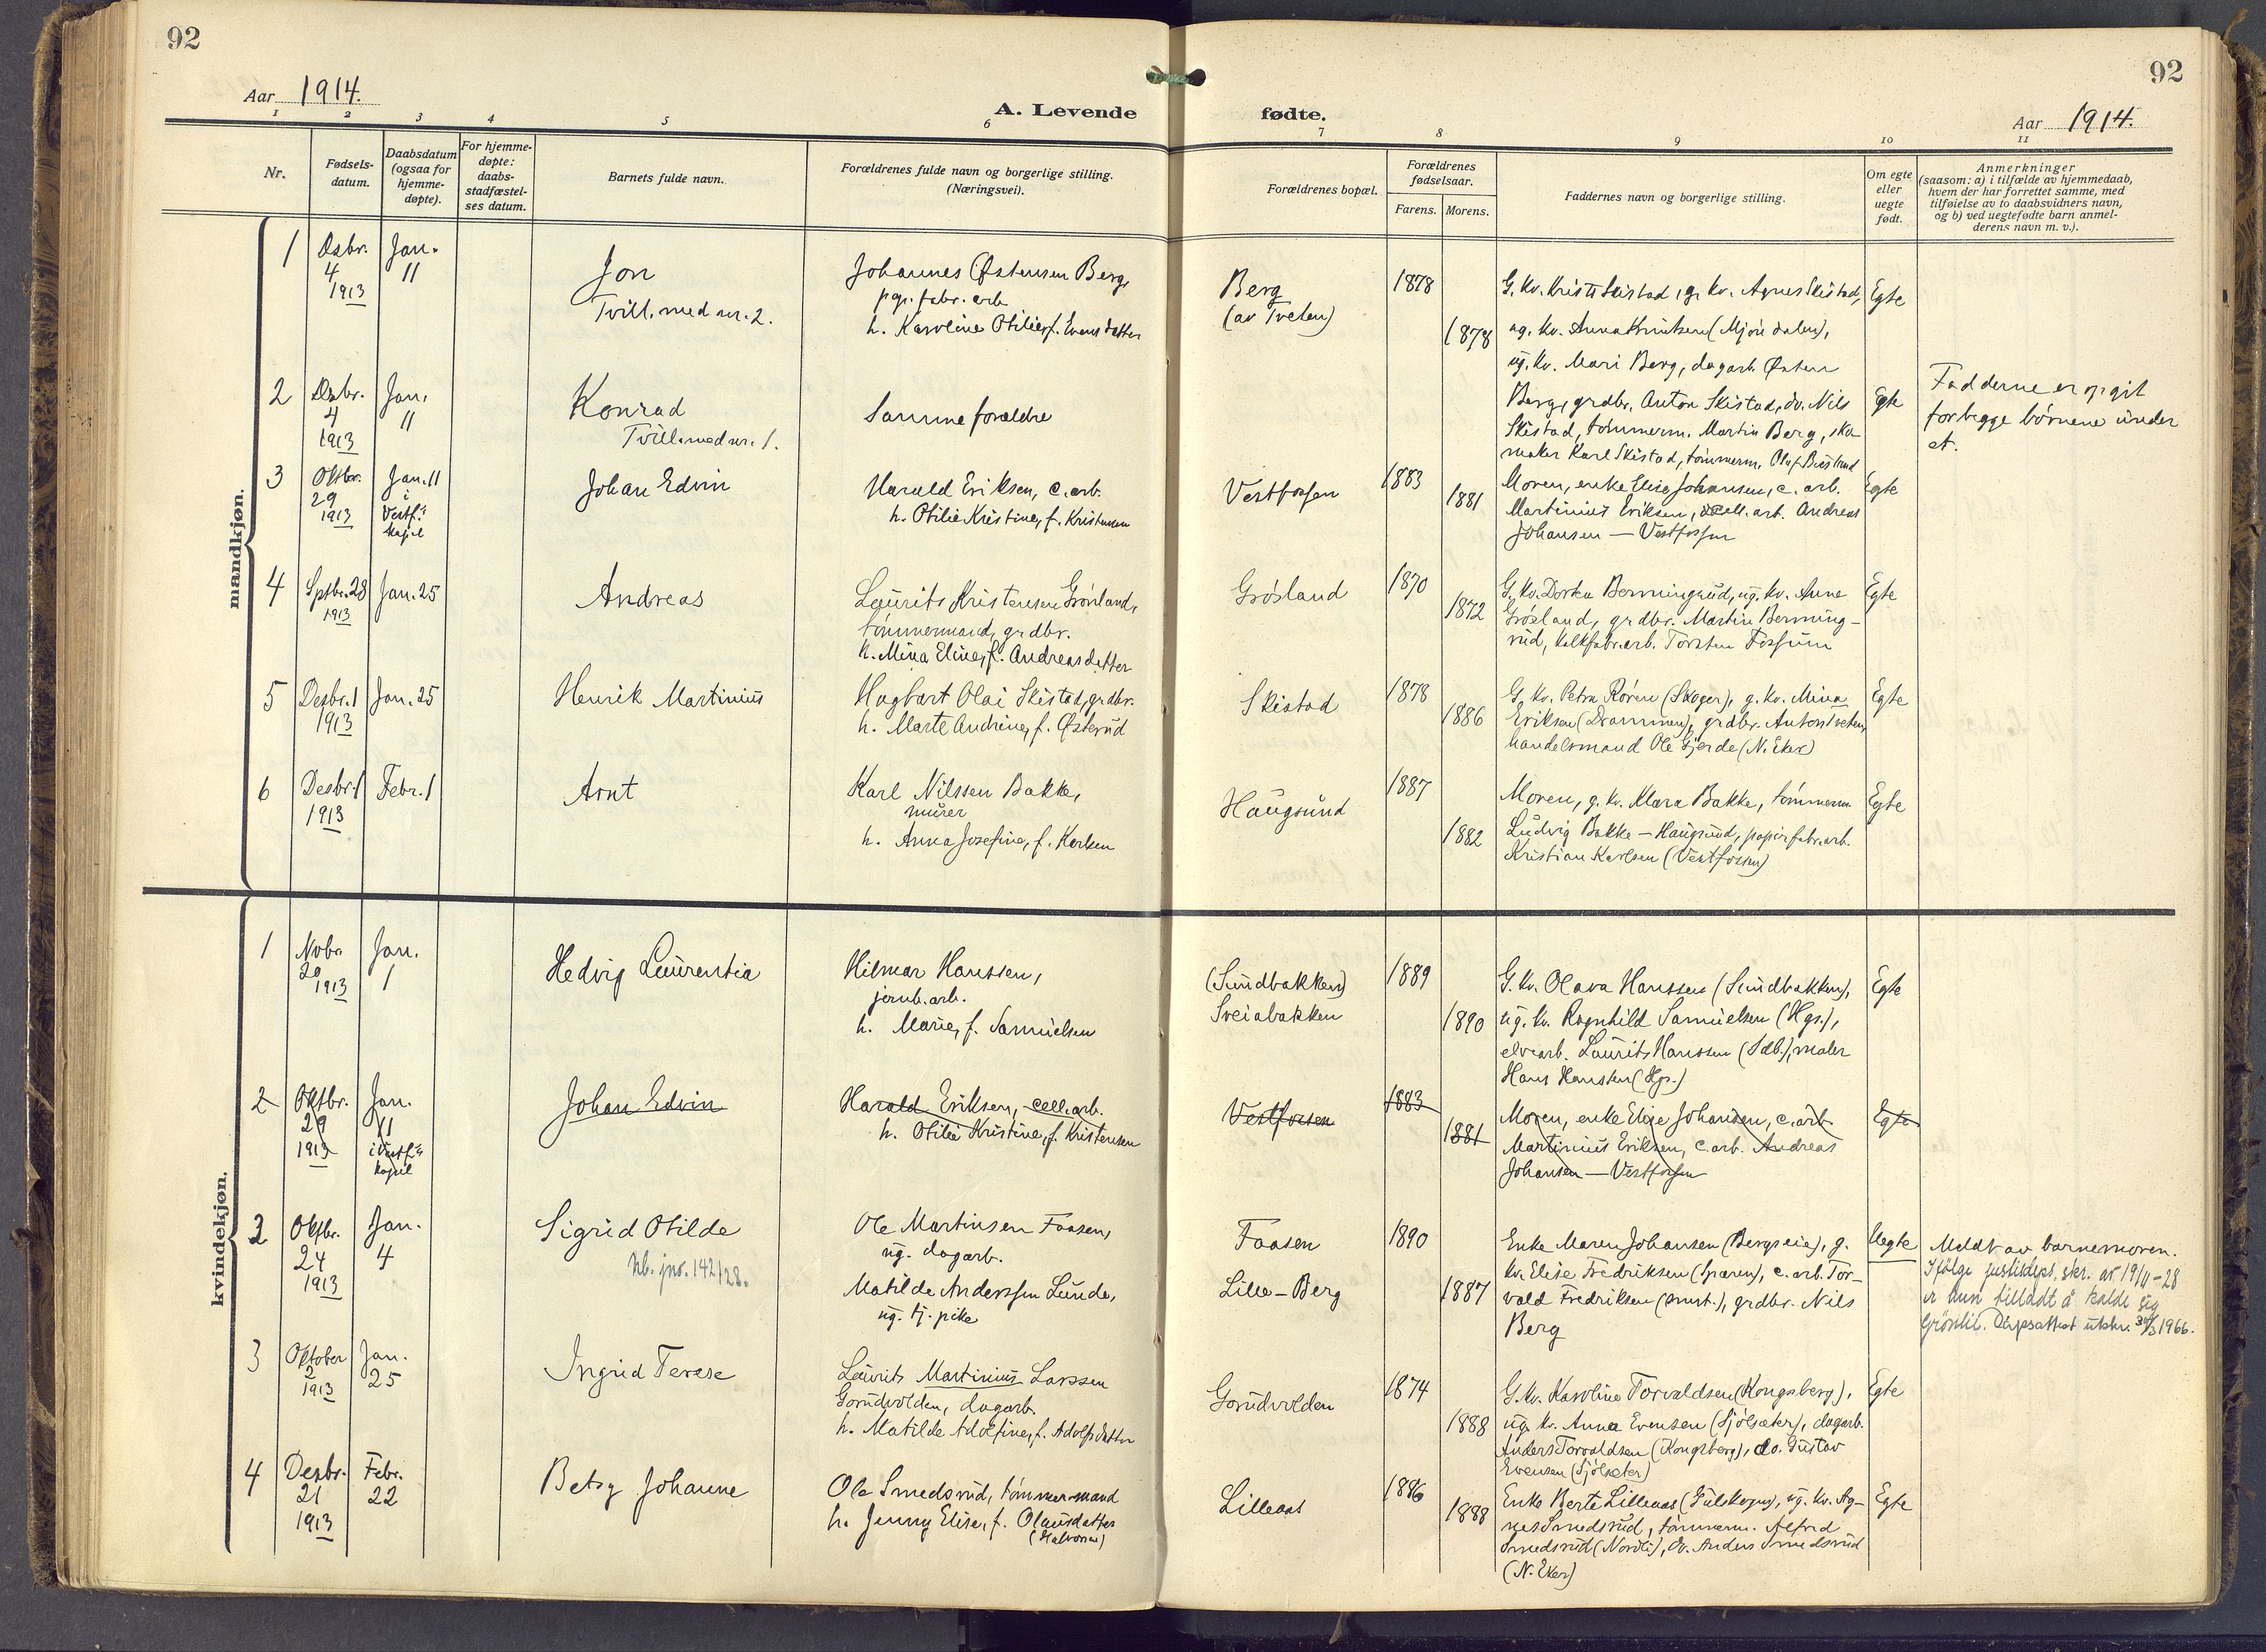 92
92
Aar 1914.
A. Levende fødte.
Aar 1914.
1 2 3 4 5 6 7 8 9 10 11
Nr.
Fødsels-
datum.
Daabsdatum
(ogsaa for
hjemme-
døpte).
For hjemme-
døpte:
daabs-
stadfæstel-
ses datum.
Barnets fulde navn.
Forældrenes fulde navn og borgerlige stilling.
(Næringsvei).
Forældrenes bopæl.
Forældrenes
fødselsaar.
Farens. Morens.
Faddernes navn og borgerlige stilling.
Om egte
eller
uegte
født.
Anmerkninger
(saasom: a) i tilfælde av hjemmedaab,
hvem der har forrettet samme, med
tilføielse av to daabsvidners navn,
og b) ved uegtefødte barn anmel-
derens navn m. v.).
mandkjøn.
1
Dsbr.
4
1913
Jan.
11
Jon
Tvill. med nr. 2.
Johannes Østensen Berg,
pgr. fabr. arb.
h. Karoline Otilie, f. Evensdatter
Berg
(av Tveten)
1878
1878
G. kv. Kristi Skistad, g. kv. Agnes Skistad,
ug. kv. Anna Knutsen (Mjøndalen),
ug. kv. Mari Berg, dagarb. Østen
Berg, grdbr. Anton Skistad, do. Nils
Skistad, tømmerm. Martin Berg, sko-
maker Karl Skistad, tømmerm. Olaf
Egte
2
Dsbr.
4
1913
Jan.
11
Konrad
Tvill. med nr. 1.
Samme forældre
Egte
Fadderne er opgit
for begge børnene under
et.
3
Oktbr.
29
1913
Jan. 11
i
Vestf.s
kapel
Johan Edvin
Harald Eriksen, c. arb.
h. Otilie Kristine, f. Kristensen
Vestfossen
1883
1881
Moren, enke Elise Johansen, c. arb.
Martinius Eriksen, cell. arb. Andreas
Johansen — Vestfossen
Egte
4
Sptbr. 28
1913
Jan. 25
Andreas
Laurits Kristensen Grønland,
tømmermand, grdbr.
h. Mina Eline, f. Andreasdatter
Grøsland
1870
1872
G. kv. Dorthea Bermingrud, ug. kv. Anne
Grøsland, grdbr. Martin Berming-
rud, kalkfabr.arb. Torsten Fossum
Egte
5
Desbr. 1
1913
Jan. 25
Henrik Martinius
Hagbart Olai Skistad, grdbr.
h. Marte Andrine, f. Østerud
Skistad
1878
1886
G. kv. Petra Røren (Skoger), g. kv. Mina
Eriksen (Drammen), grdbr. Anton Tveten,
handelsmand Ole Gjerde (N. Eker)
Egte
6
Desbr. 1
1913
Febr. 1
Arnt
Karl Nilssen Bakke,
murer
h. Anna Josefine, f. Karlsen
Haugsund
1887
1882
Moren, g. kv. Klara Bakke, tømmerm.
Ludvig Bakke — Haugsund, papirfabr.arb.
Kristian Karlsen (Vestfossen)
Egte
kvindekjøn.
1
Nvbr.
20
1913
Jan.
1
Hedvig Laurentia
Hilmar Hanssen,
jernb. arb.
h. Marie, f. Samuelsen
(Sundbakken)
Sveiabakken
1889
1890
G. kv. Olava Hanssen (Sundbakken),
ug. kv. Ragnhild Samuelsen (Hgs.),
elvearb. Laurits Hanssen (Sdb.), maler
Hans Hanssen (Hgs.)
Egte
2
Oktbr.
29
1913
Jan.
11
i Vestf.s
kapel
Johan Edvin
Harald Eriksen, cell.arb.
h. Otilie Kristine, f. Kristensen
Vestfossen
1883
1881
Moren, enke Elise Johansen, c. arb.
Martinius Eriksen, c. arb. Andreas
Johansen — Vestfossen
Egte
2
Oktbr.
24
1913
Jan.
4
Sigrid Otilde
kb. jnr. 142/28.
Ole Martinsen Faasen,
ug. dagarb.
Matilde Anderssen Lunde,
ug. tj. pike
Faasen
Lille-Berg
1890
1887
Enke Maren Johansen (Bergseie), g.
kv. Elise Fredriksen (Sparen), c. arb. Tor-
vald Fredriksen (smst.), grdbr. Nils
Berg
Uegte
Meldt av barnemoren.
Ifølge justisdept. skr. av 19/4-28
er hun tilladt å kalde sig
Grønli. Dåpsattest utskr. 30/3 1966.
3
Oktober
2
1913
Jan.
25
Ingrid Terese
Laurits Martinius Larssen
Gorudvolden, dagarb.
h. Matilde Adolfine, f. Adolfsdatter
Gorudvolden
1874
1888
G. kv. Karoline Torvaldsen (Kongsberg),
ug. kv. Anna Evensen (Sjølsæter), dagarb.
Anders Torvaldsen (Kongsberg), do. Gustav
Evensen (Sjølsæter)
Egte
4
Desbr.
21
1913
Febr.
22
Betsy Johanne
Ole Smedsrud, tømmermand
h. Jenny Elise, f. Olausdatter
(Halvorsen)
Lilleaas
1886
1888
Enke Berte Lilleaas (Gulskogen), ug. kv. Ag-
nes Smedsrud, tømmerm. Alfred
Smedsrud (Nordli), do. Anders Smedsrud
(N. Eker)
Egte